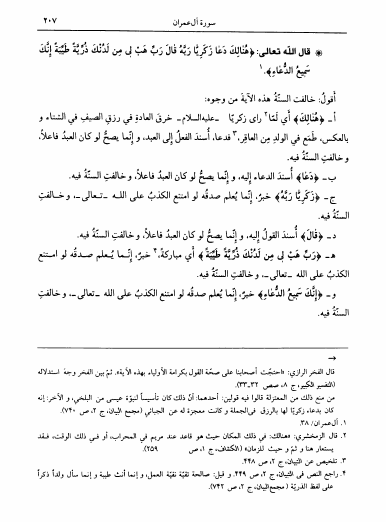 سورة آل‌عمران
٢٠٧
* قال اللّه تعالى: ﴿هُنَالِكَ دَعَا زَكَرِيَّا رَبَّهُ قَالَ رَبِّ هَبْ لِي مِن لَدُنْكَ ذُرِّيَّةً طَيِّبَةً إِنَّكَ
سَمِيعُ الدُّعَاءِ﴾.١
أقول: خالفت السنّةُ هذه الآيةَ من وجوه:
أ ـ ﴿هُنَالِكَ﴾ أي لمّا٢ رأى زكريّا ـ عليه‌السلام‌ـ خرقَ العادةِ في رزقِ الصيفِ في الشتاء و
بالعكس، طَمَع في الولدِ مِن العاقر،٣ فدعا، أسندَ الفعلَ إلى العبد، و إنّما يصحُّ لو كان العبدُ فاعلاً،
و خالفتِ السنّةُ فيه.
ب ـ ﴿دَعَا﴾ أسندَ الدعاء إليه، و إنّما يصحُّ لو كان العبدُ فاعلاً، وخالفتِ السنّةُ فيه.
ج ـ ﴿زَكَرِيَّا رَبَّهُ﴾ خبرٌ، إنّما يُعلم صدقُه لو امتنع الكذبُ على اللـه ـ تـعالى ـ، و خـالفتِ
السنّةُ فيه.
د ـ ﴿قَالَ﴾ أسندَ القولَ إليه، و إنّما يصحُّ لو كان العبدُ فاعلاً، وخالفتِ السنّةُ فيه.
هـ ـ ﴿رَبِّ هَبْ لِي مِن لَدُنْكَ ذُرِّيَّةً طَيِّبَةً﴾ أي مباركةً،٤ خبرٌ، إنّـما يُـعلم صـدقُه لو امتنع
الكذبُ على الله ـ تعالى ـ، و خالفتِ السنّةُ فيه.
و ـ ﴿إِنَّكَ سَمِيعُ الدُّعَاءِ﴾ خبرٌ، إنّما يُعلم صدقُه لو امتنع الكذبُ على الله ـ تعالى ـ، و خالفتِ
السنّةُ فيه.
→
قال الفخر الرازي: «احتجّت أصحابنا على صحّة القول بكرامة الأولياء بهذه الآية». ثمّ بين الفخر وجهَ استدلاله
(التفسير الكبير، ج ٨، صص ٣٢ـ٣٣).
من منع ذلك من المعتزلة قالوا فيه قولين: أحدهما: أنّ ذلك كان تأسيساً لنبوّة عيسى من البلخي، و الآخر: إنه
كان بدعاء زكريّا لها بالرزق في‌الجملة و كانت معجزة له عن الجبائي (مجمع البيان، ج ٢، ص ٧٤٠).
١. آل‌عمران/ ٣٨.
٢. قال الزمخشري: «هنالك: في ذلك المكان حيث هو قاعد عند مريم في المحراب، أو في ذلك الوقت، فـقد
يستعار هنا و ثمّ و حيث للزمان» (الكشّاف، ج ١، ص ٢٥٩).
٣. تلخيص عن التبيان، ج ٢، ص ٤٤٨.
٤. راجع النص في التبيان، ج ٢، ص ٤٤٩. و قيل: صالحة تقيّة نقيّة العمل، و إنما أنث طيبة و إنما سأل ولداً ذكراً
على لفظ الذريّة (مجمع‌البيان، ج ٢، ص ٧٤٢).